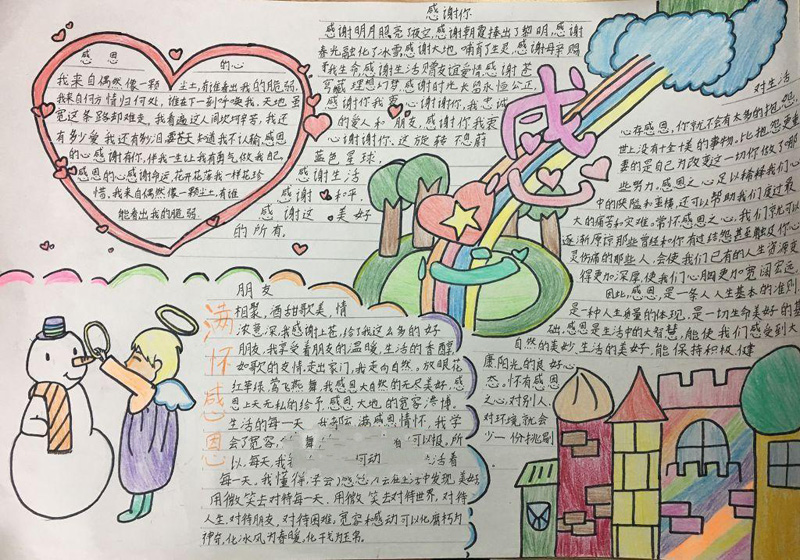 感恩的心
我来自偶然像一颗尘土,有谁看出我的脆弱,
我来自何方情归何处,谁在下一刻呼唤我,天地虽
宽这条路却难走,我看遍这人间坎坷辛苦,我还
有多少爱我还有多少泪要苍天知道我不认输,感恩
的心感谢有你,伴我一生让我有勇气做我自己,
感恩的心感谢命运,花开花落我一样会珍
惜,我来自偶然像一颗尘土,有谁
能看出我的脆弱.
感谢你
感谢明月照亮了夜空,感谢朝霞捧出了黎明,感谢
春光融化了冰雪,感谢大地哺育了生灵,感谢母亲赐
予我生命,感谢生活赠友谊爱情,感谢苍
穹藏理想幻梦,感谢时光长留永恒公正,
感谢你我衷心谢谢你,我忠诚
的爱人和朋友,感谢你我衷
心谢谢你,这旋转不息蔚
蓝色星球,
感谢生活
感谢和平,
感谢这美好
的所有.
感恩
对生活
心存感恩,你就不会有太多的抱怨,
世上没有十全十美的事物,比抱怨更重
要的是自己为改变这一切你做了哪
些努力,感恩之心足以稀释我们心
中的狭隘和蛮横,还可以帮助我们度过最
大的痛苦和灾难,常怀感恩之心,我们就可以
逐渐原谅那些曾经和你有过结怨甚至触及你心
灵伤痛的那些人,会使我们已有的人生资源变
得更加深厚,使我们心胸更加宽阔宏远.
因此,感恩,是一条人人生基本的准则,
是一种人生质量的体现,是一切生命美好的基
础,感恩是生活中的大智慧,能使我们感受到大
自然的美妙,生活的美好,能保持积极、健
康阳光的良好心
态,怀有感恩
之心,对别人,
对环境就会
少一份挑剔
满怀感恩
朋友
相聚,酒甜歌美,情
浓意深,我感谢上苍,给了我这么多的好
朋友,我享受着朋友的温暖,生活的香醇,
如歌的友情,走出家门,我走向自然,放眼花
红草绿,莺飞燕舞,我感恩大自然的无尽美好,感
恩上天无私的给予,感恩大地的宽容浩博.
生活的每一天,我都充满感恩情怀,我学
会了宽容,
可以报,所
以,每天,我
可动
活着
每一天,我懂得
在生活中发现美好,
用微笑去对待每一天,用微笑去对待世界,对待
人生,对待朋友,对待困难,宽容和感动可以化腐朽为
神奇,化冰风为春暖,化干戈为玉帛.